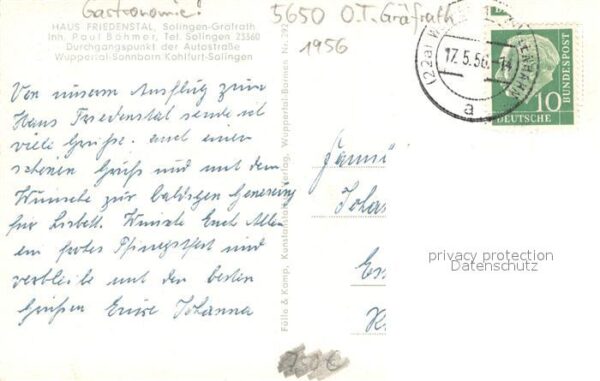 Gastronomie!
5650 O.T. Gräfrath
1956
HAUS FRIEDENSTAL, Solingen-Gräfrath
Inh. Paul Böhmer, Tel. Solingen 23560
Durchgangspunkt der Autostraße
Wuppertal-Sonnborn Kohlfurt-Solingen
Von unserm Ausflug zum
Haus Friedenstal sende ich
viele Grüße. auch einen
schönen Gruß und mit dem
Wunsche zur baldigen Genesung
für Lisbeth. Wünsche Euch Allen
ein frohes Pfingstfest und
verbleibe mit den besten
Grüßen Eure Johanna
Fölte & Kamp, Wuppertal-Barmen Nr.
(22a)
17.5.56.-14
a
10
DEUTSCHE
BUNDESPOST
Famili
Joha
privacy protection
Datenschutz